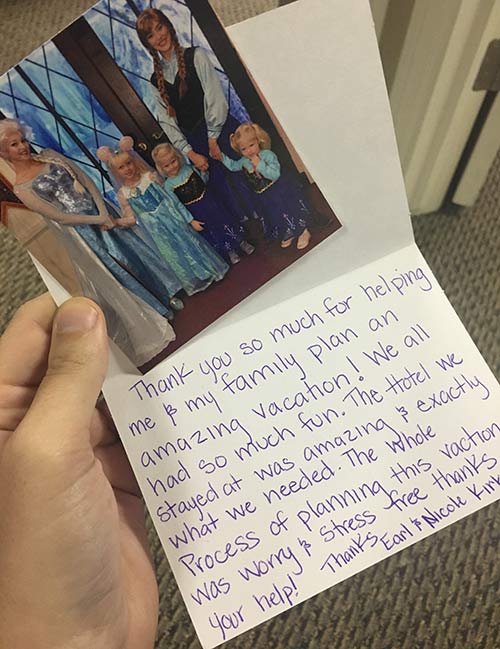 Thank you so much for helping
me & my family plan an
amazing vacation! We all
had so much fun. The Hotel we
stayed at was amazing & exactly
what we needed. The whole
Process of planning this vaction
was worry & stress free thanks
your help! Thanks, Earl & Nicole Kirk